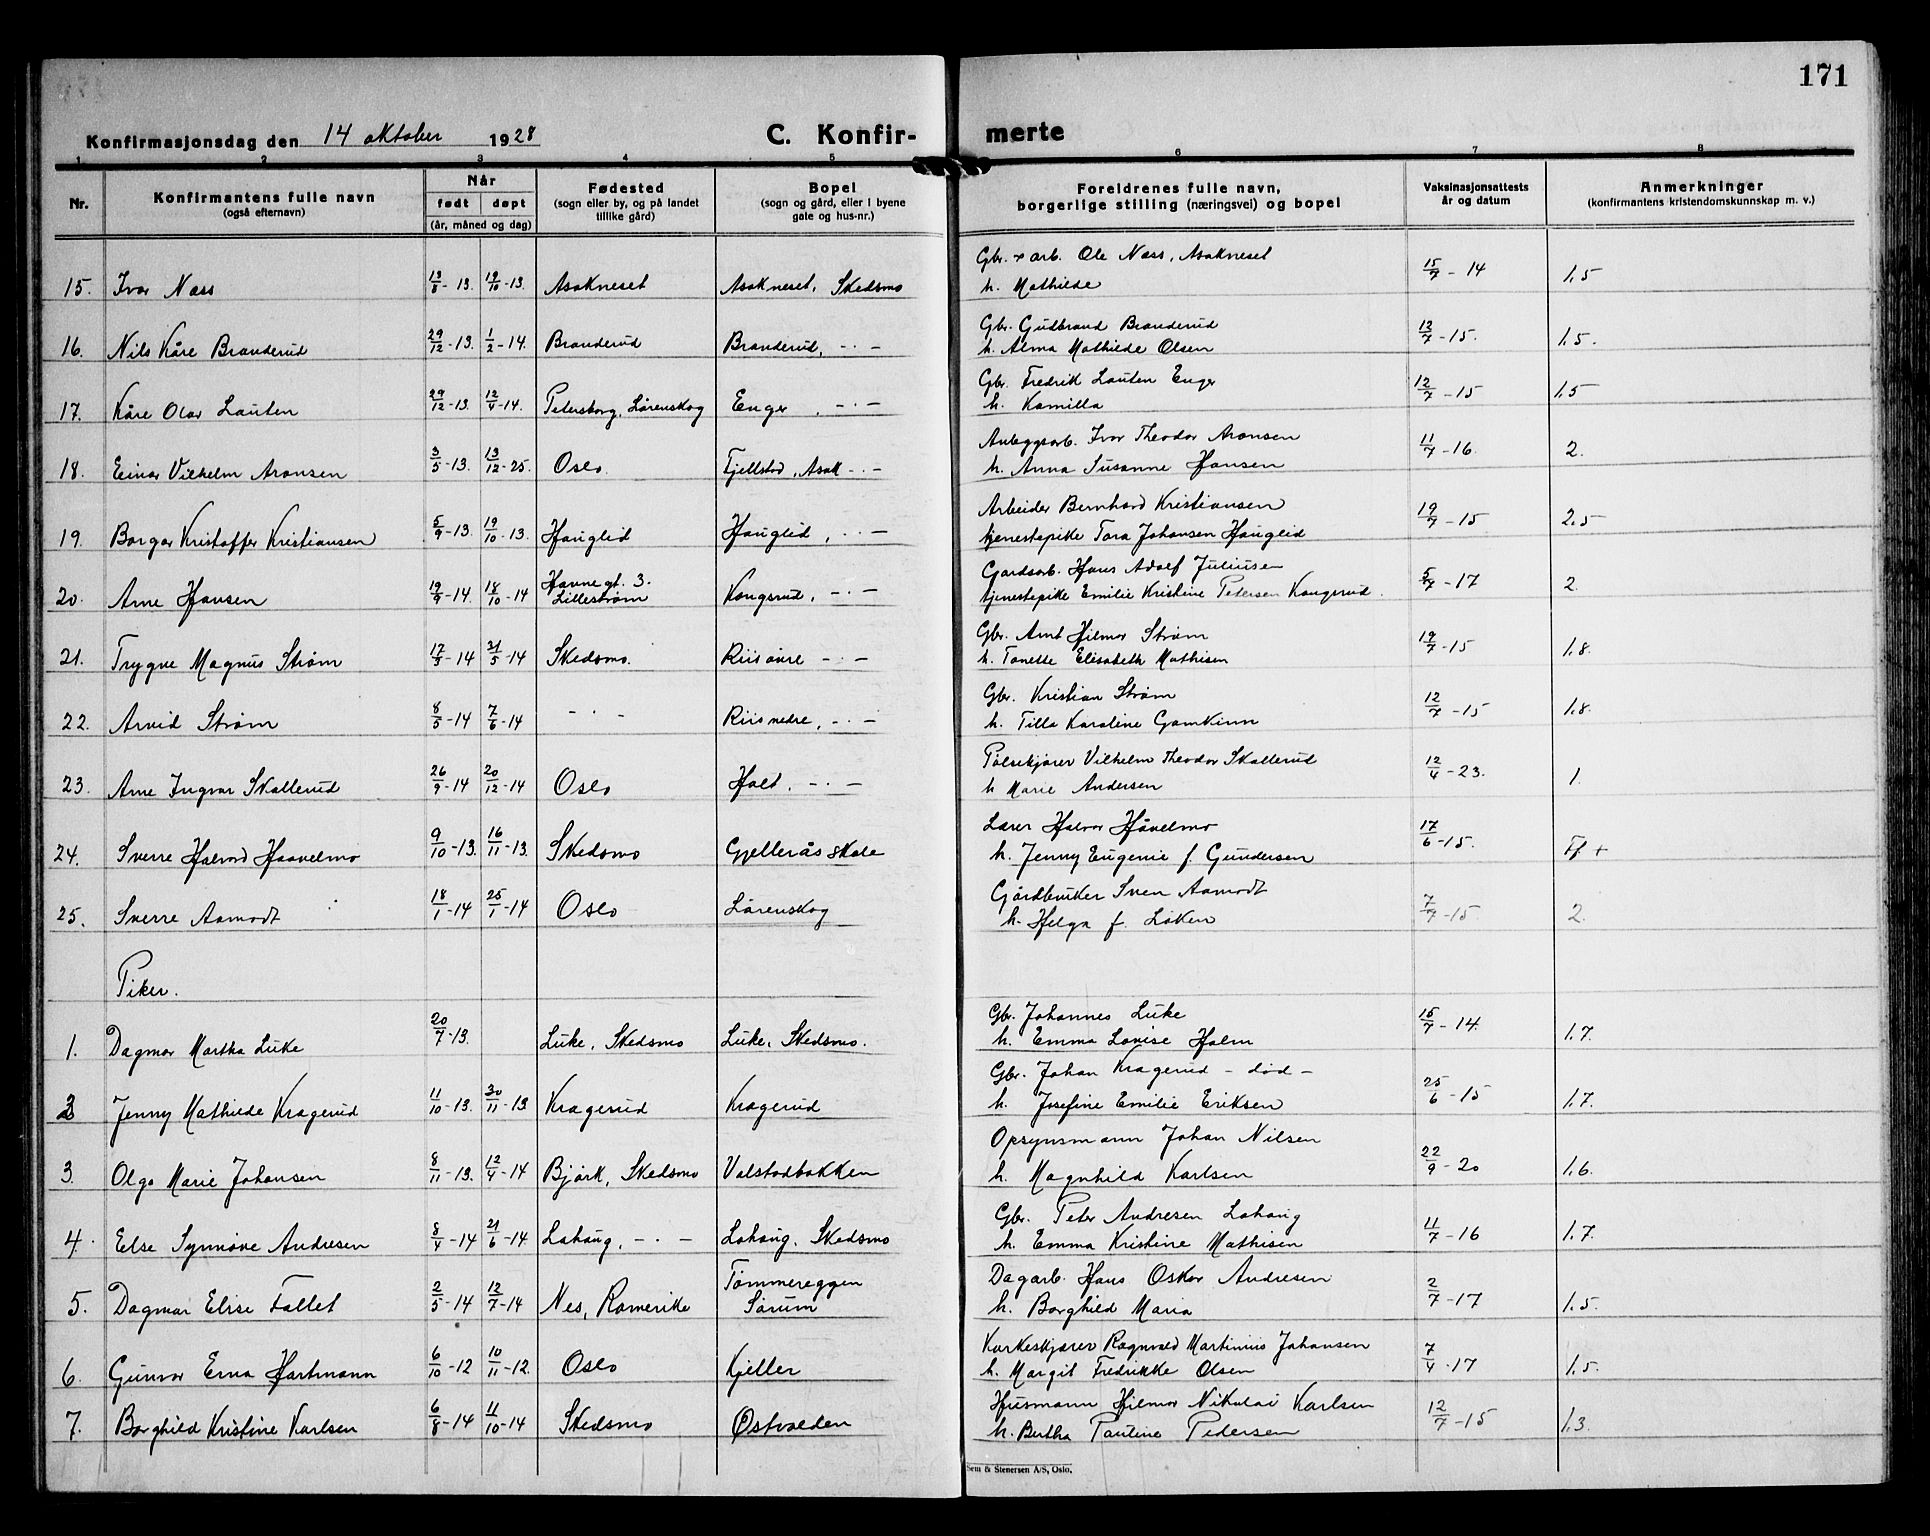 171
Konfirmasjonsdag den 14 oktober 1928
C. Konfir- merte
1 2 3 4 5 6 7 8
Nr. Konfirmantens fulle navn (også efternavn) Når født døpt (år, måned og dag) Fødested (sogn eller by, og på landet tillike gård) Bopel (sogn og gård, eller i byene gate og hus-nr.) Foreldrenes fulle navn, borgerlige stilling (næringsvei) og bopel Vaksinasjonsattests år og datum Anmerkninger (konfirmantens kristendomskunnskap m. v.)
Gbr. & arb. Ole Næss, Asakneset
15. Ivar Næss 13/8-13. 19/10-13. Asakneset Asakneset, Skedsmo h. Mathilde 15/7-14 1,5
Gbr. Gudbrand Branderud
16. Nils Kåre Branderud 29/12-13. 1/2-14. Branderud Branderud, -·- h. Alma Mathilde Olsen 12/7-15. 1,5.
Gbr. Fredrik Lauten Enger
17. Kåre Olav Lauten 29/12-13. 12/4-14. Petersborg, Lørenskog Enger, -·- h. Kamilla 12/7-15 1,5
Anleggsarb. Ivar Theodor Aronsen
18. Einar Vilhelm Aronsen 3/5-13. 13/12-25. Oslo Fjellstad, Asak -·- h. Anna Susanne Hansen 11/7-16 2.
Arbeider Bernhard Kristiansen
19. Borgar Kristoffer Kristiansen 5/9-13 19/10-13. Hauglid Hauglid, -·- tjenestepike Tora Johansen Hauglid 19/7-15 2,5
Gardsarb. Hans Adolf Juliusen
20. Arne Hansen 19/9-14. 18/10-14 Havnegt. 3. Lillestrøm Kongsrud, -·- tjenestepike Emilie Kristine Petersen Kongsrud. 5/7-17 2.
Gbr. Arnt Hilmar Strøm
21. Trygve Magnus Strøm 17/3-14 21/5-14 Skedsmo. Riis øvre -·- h. Tonette Elisabeth Mathisen 19/7-15 1,8.
Gbr. Kristian Strøm
22. Arvid Strøm 8/5-14 7/6-14 -·- Riis nedre, -·- h. Tilla Karoline Gamkinn 12/7-15 1,8.
Pølsekjører Vilhelm Theodor Skallerud
23. Arne Ingvar Skallerud 26/9-14 20/12-14 Oslo Holt, -·- h Marie Andersen 12/4-23. 1.
Lærer Halvor Håvelmo
24. Sverre Halvord Haavelmo 9/10-13. 16/11-13. Skedsmo Gjellerås skole h. Jenny Eugenie f. Gundersen 17/6-15.
Gårdbruker Sven Aamodt
25. Sverre Aamodt 18/1-14 25/1-14 Oslo Lørenskog h. Helga f. Løken 7/7-15. 2.
Piker.
Gbr. Johannes Luke
1. Dagmar Martha Luke 20/7-13. Luke, Skedsmo Luke, Skedsmo. h. Emma Lovise Holm 15/7-14. 1,7.
Gbr. Johan Kragerud - død -
2 Jenny Mathilde Kragerud 11/10-13. 30/11-13 Kragerud Kragerud h. Josefine Emilie Eriksen 25/6-15 1,7.
Opsynsmann Johan Nilsen
3. Olga Marie Johansen 8/11-13. 12/4-14 Bjørk, Skedsmo Valstadbakken h. Magnhild Karlsen 22/9-20 1,6.
Gbr. Peter Andresen Lahaug
4. Else Synnøve Andresen 8/4-14 21/6-14 Lahaug, -·- Lahaug, Skedsmo h. Emma Kristine Mathisen 11/7-16 1,7.
Dagarb. Hans Oskar Andresen
5. Dagmar Elise Fallet 2/5-14 12/7-14 Nes, Romerike Tømmereggen Sørum h. Borghild Maria 2/7-17 1,5.
Karkeskjører Ragnvald Martinius Johansen
6. Gunvor Erna Hartmann 6/10-12 10/11-12. Oslo Kjeller h. Margit Fredrikke Olsen 7/4-17 1,5.
Husmann Hilmar Nikolai Karlsen
7. Borghild Kristine Karlsen 6/8-14 11/10-14 Skedsmo Østvolden h. Bertha Pauline Pedersen 12/7-15 1,3.
Sem & Stenersen A/S, Oslo.